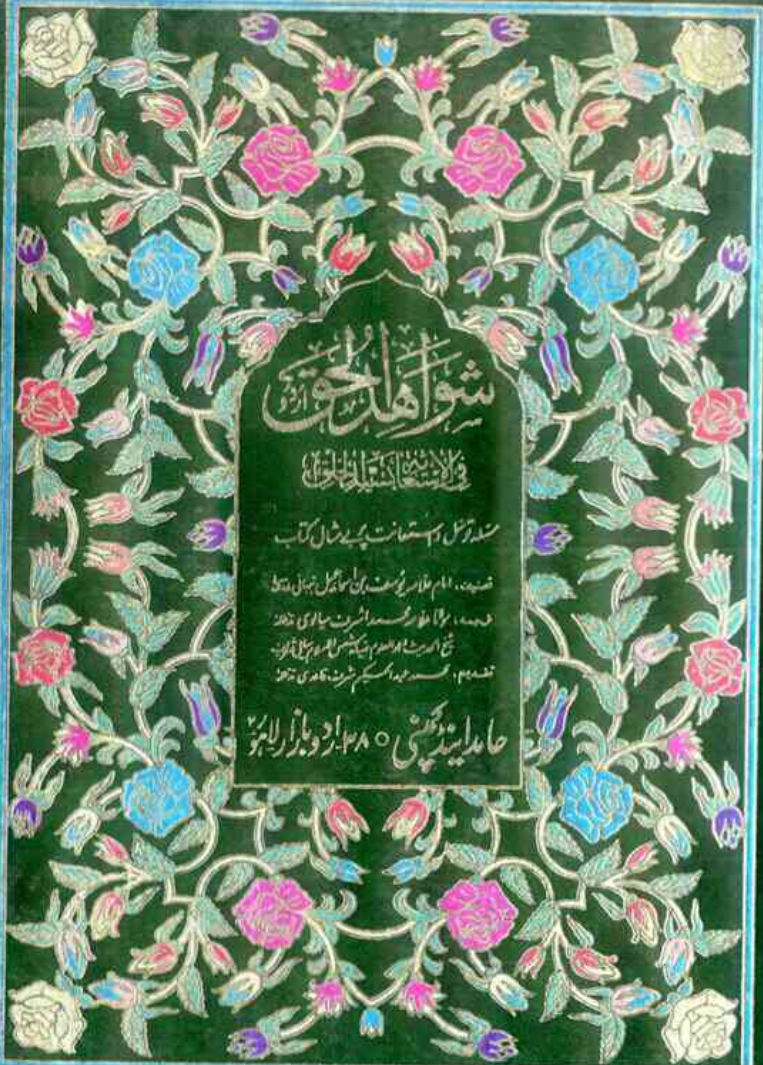 شواهد الحق اردو
فی الاستغاثة بسید الخلق
مسئلہ توسل و استعانت پر بے مثال کتاب
تصنیف، امام علامہ یوسف بن اسماعیل نبہانی
ترجمہ، مولانا علامہ محمد اشرف سیالوی مدظلہ
شیخ الحدیث دارالعلوم ضیاء شمس الاسلام سیال شریف
تقدیم، محمد عبدالحکیم شرف قادری مدظلہ
حامد اینڈ کمپنی ○ ۳۸۔اردو بازار لاہور